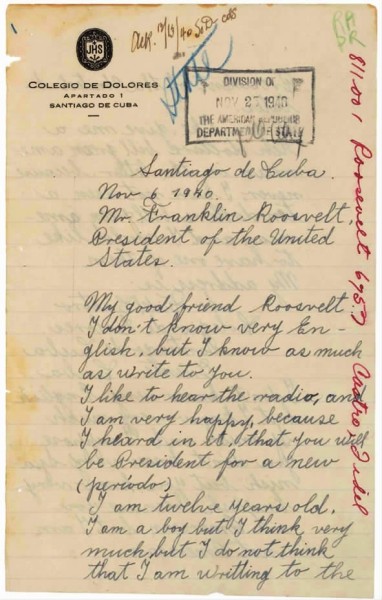 Ack. 12/13/40
State
JHS
COLEGIO DE DOLORES
APARTADO 1
SANTIAGO DE CUBA
DIVISION OF
NOV 27 1940
THE AMERICAN REPUBLICS
DEPARTMENT OF STATE
811.001 Roosevelt 695.7
Castro, Fidel
Santiago de Cuba.
Nov 6 1940.
Mr. Franklin Roosevelt,
President of the United
States.
My good friend Roosevelt
I don't know very En-
glish, but I know as much
as write to you.
I like to hear the radio, and
I am very happy, because
I heard in it, that you will
be President for a new
(período)
I am twelve years old.
I am a boy but I think very
much but I do not think
that I am writting to the